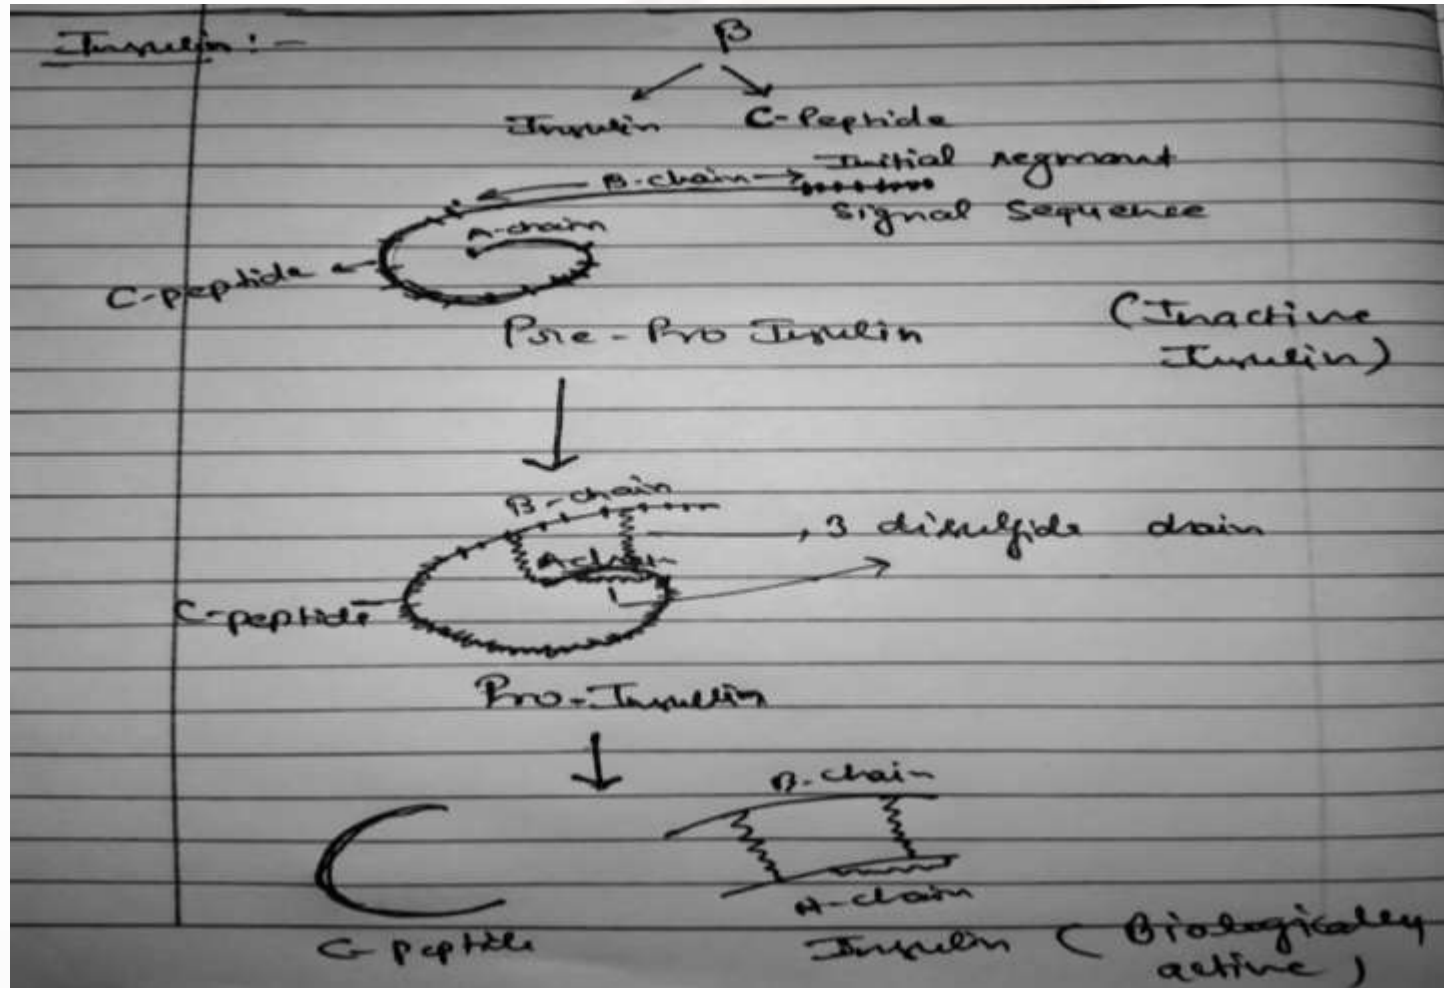 Insulin :-
β
Insulin C-Peptide
B-chain Initial segment
Signal Sequence
A-chain
C-peptide
Pre-Pro Insulin
(Inactive
Insulin)
B-chain
, 3 disulfide chain
A-chain
C-peptide
Pro-Insulin
B-chain
A-chain
C-peptide
Insulin (Biologically
active)